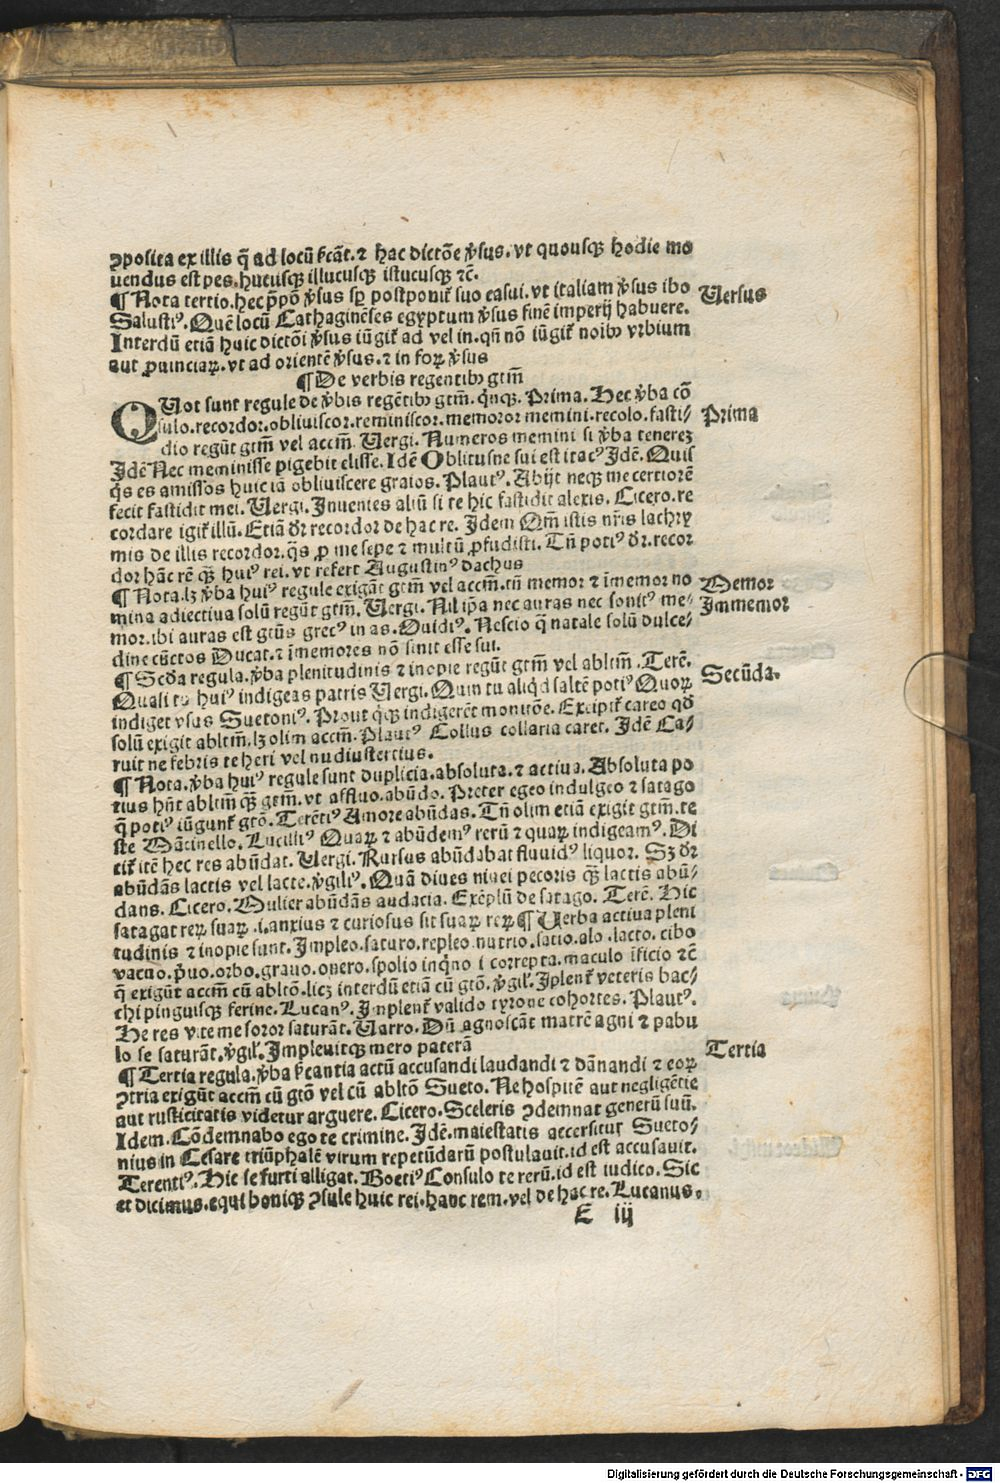 ꝯposita ex illis q̄ ad locū s̄cāt. ⁊ hac dictōe v̄sus. vt quousqꝫ hodie mo
uendus est pes. hucusqꝫ illucusqꝫ istucusqꝫ ⁊c̄.
¶ Nota tertio. hec p̄pō v̄sus sꝑ postponit᷑ suo casui. vt italiam v̄sus ibo
Salustiꝰ. Quē locū Cathaginēses egyptum v̄sus finē imperij habuere.
Interdū etiā huic dictōi v̄sus iūgit᷑ ad vel in. qn̄ nō iūgit᷑ noibꝫ vrbium
aut ꝓuinciaꝝ. vt ad orientē v̄sus. ⁊ in foꝝ v̄sus
¶ De verbis regentibꝫ gtm̄
QUot sunt regule de v̄bis regētibꝫ gtm̄. qnqꝫ. Prima. Hec v̄ba cō
sulo. recordor. obliuiscor. reminiscor. memoror memini. recolo. fasti⸗
dio regūt gtm̄ vel accm̄. Uergi. Numeros memini si v̄ba tenerez
Idē Nec meminisse pigebit elisse. Idē Oblitusne sui est itacꝰ Idē. Quis
q̄s es amissos huic iā obliuiscere graios. Plautꝰ. Abijt neqꝫ me certiorē
fecit fastidit mei. Uergi. Inuenies aliū si te hic fastidit alexis. Cicero. re
cordare igit᷑ illū. Etiā dr̄ recordor de hac re. Idem Qm̄ istis nr̄is lachry
mis de illis recordor. q̄s ꝓ me sepe ⁊ multū ꝓfudisti. Tn̄ potiꝰ dr̄. recor
dor hāc rē qꝫ huiꝰ rei. vt refert Augustinꝰ dachus
¶ Nota. lꝫ v̄ba huiꝰ regule exigāt gtm̄ vel accm̄. tn̄ memor ⁊ īmemor no
mina adiectiua solū regūt gtm̄. Uergi. Nil ip̄a nec auras nec sonitꝰ me⸗
mor. ibi auras est gtūs grecꝰ in as. Ouidiꝰ. Nescio q̄ natale solū dulce⸗
dine cūctos Ducat. ⁊ īmemores nō sinit esse sui.
¶ Scd̄a regula. v̄ba plenitudinis ⁊ inopie regūt gtm̄ vel abltm̄. Terē.
Quali tu huiꝰ indigeas patris Uergi. Quin tu aliqd saltē potiꝰ Quoꝝ
indiget vsus Suetoniꝰ. Prout qsqꝫ indigerēt monitōe. Excipit᷑ careo qd̄
solū exigit abltm̄. lꝫ olim accm̄. Plautꝰ Collus collaria caret. Idē Ca⸗
ruit ne febris te heri vel nudiustertius.
¶ Nota. v̄ba huiꝰ regule sunt duplicia. absoluta. ⁊ actiua. Absoluta po
tius hn̄t abltm̄ qꝫ gtm̄. vt affluo. abūdo. Preter egeo indulgeo ⁊ satago
q̄ potiꝰ iūgunt᷑ gtō. Terētiꝰ Amore abūdas. Tn̄ olim etiā exigit gtm̄. te
ste Mācinello. Lucilliꝰ Quaꝝ ⁊ abūdemꝰ rerū ⁊ quaꝝ indigeamꝰ. Di
cit᷑ itē hec res abūdat. Uergi. Rursus abūdabat fluuidꝰ liquor. Sꝫ dr̄
abūdās lactis vel lacte. v̄giliꝰ. Quā diues niuei pecoris qꝫ lactis abū⸗
dans. Cicero. Mulier abūdās audacia. Exēplū de satago. Terē. Hic
satagat reꝝ suaꝝ .i. anxius ⁊ curiosus sit suaꝝ reꝝ ¶ Uerba actiua pleni
tudinis ⁊ inopie sunt. Impleo. saturo. repleo. nutrio. satio. alo. lacto. cibo
vacuo. p̄uo. orbo. grauo. onero. spolio inqno i correpta. maculo īficio ⁊c̄
q̄ exigūt accm̄ cū abltō. licꝫ interdū etiā cū gtō. v̄gil᷑. Iplent᷑ veteris bac⸗
chi pinguisqꝫ ferine. Lucanꝰ. Implent᷑ valido tyrone cohortes. Plautꝰ.
He res vite me soror saturāt. Uarro. Dū agnoscāt matrē agni ⁊ pabu
lo se saturāt. v̄gil᷑. Impleuitqꝫ mero paterā
¶ Tertia regula. v̄ba s̄cantia actū accusandi laudandi ⁊ dānandi ⁊ eoꝝ
ꝯtria exigūt accm̄ cū gtō vel cū abltō Sueto. Ne hospitē aut negligētie
aut rusticitatis videtur arguere. Cicero. Sceleris ꝯdemnat generū suū.
Idem. Cōdemnabo ego te crimine. Idē. maiestatis accersitur Sueto⸗
nius in Cesare triūphalē virum repetūdarū postulauit. id est accusauit.
Terentiꝰ. Hic se furti alligat. Boetiꝰ Consulo te rerū. id est iudico. Sic
et dicimus. equi boniqꝫ ꝯsule huic rei. hanc rem. vel de hac re. Lucanus.
E iij
Uersus
Prima
Memor
Immemor
Secūda.
Tertia
Digitalisierung gefördert durch die Deutsche Forschungsgemeinschaft - DFG